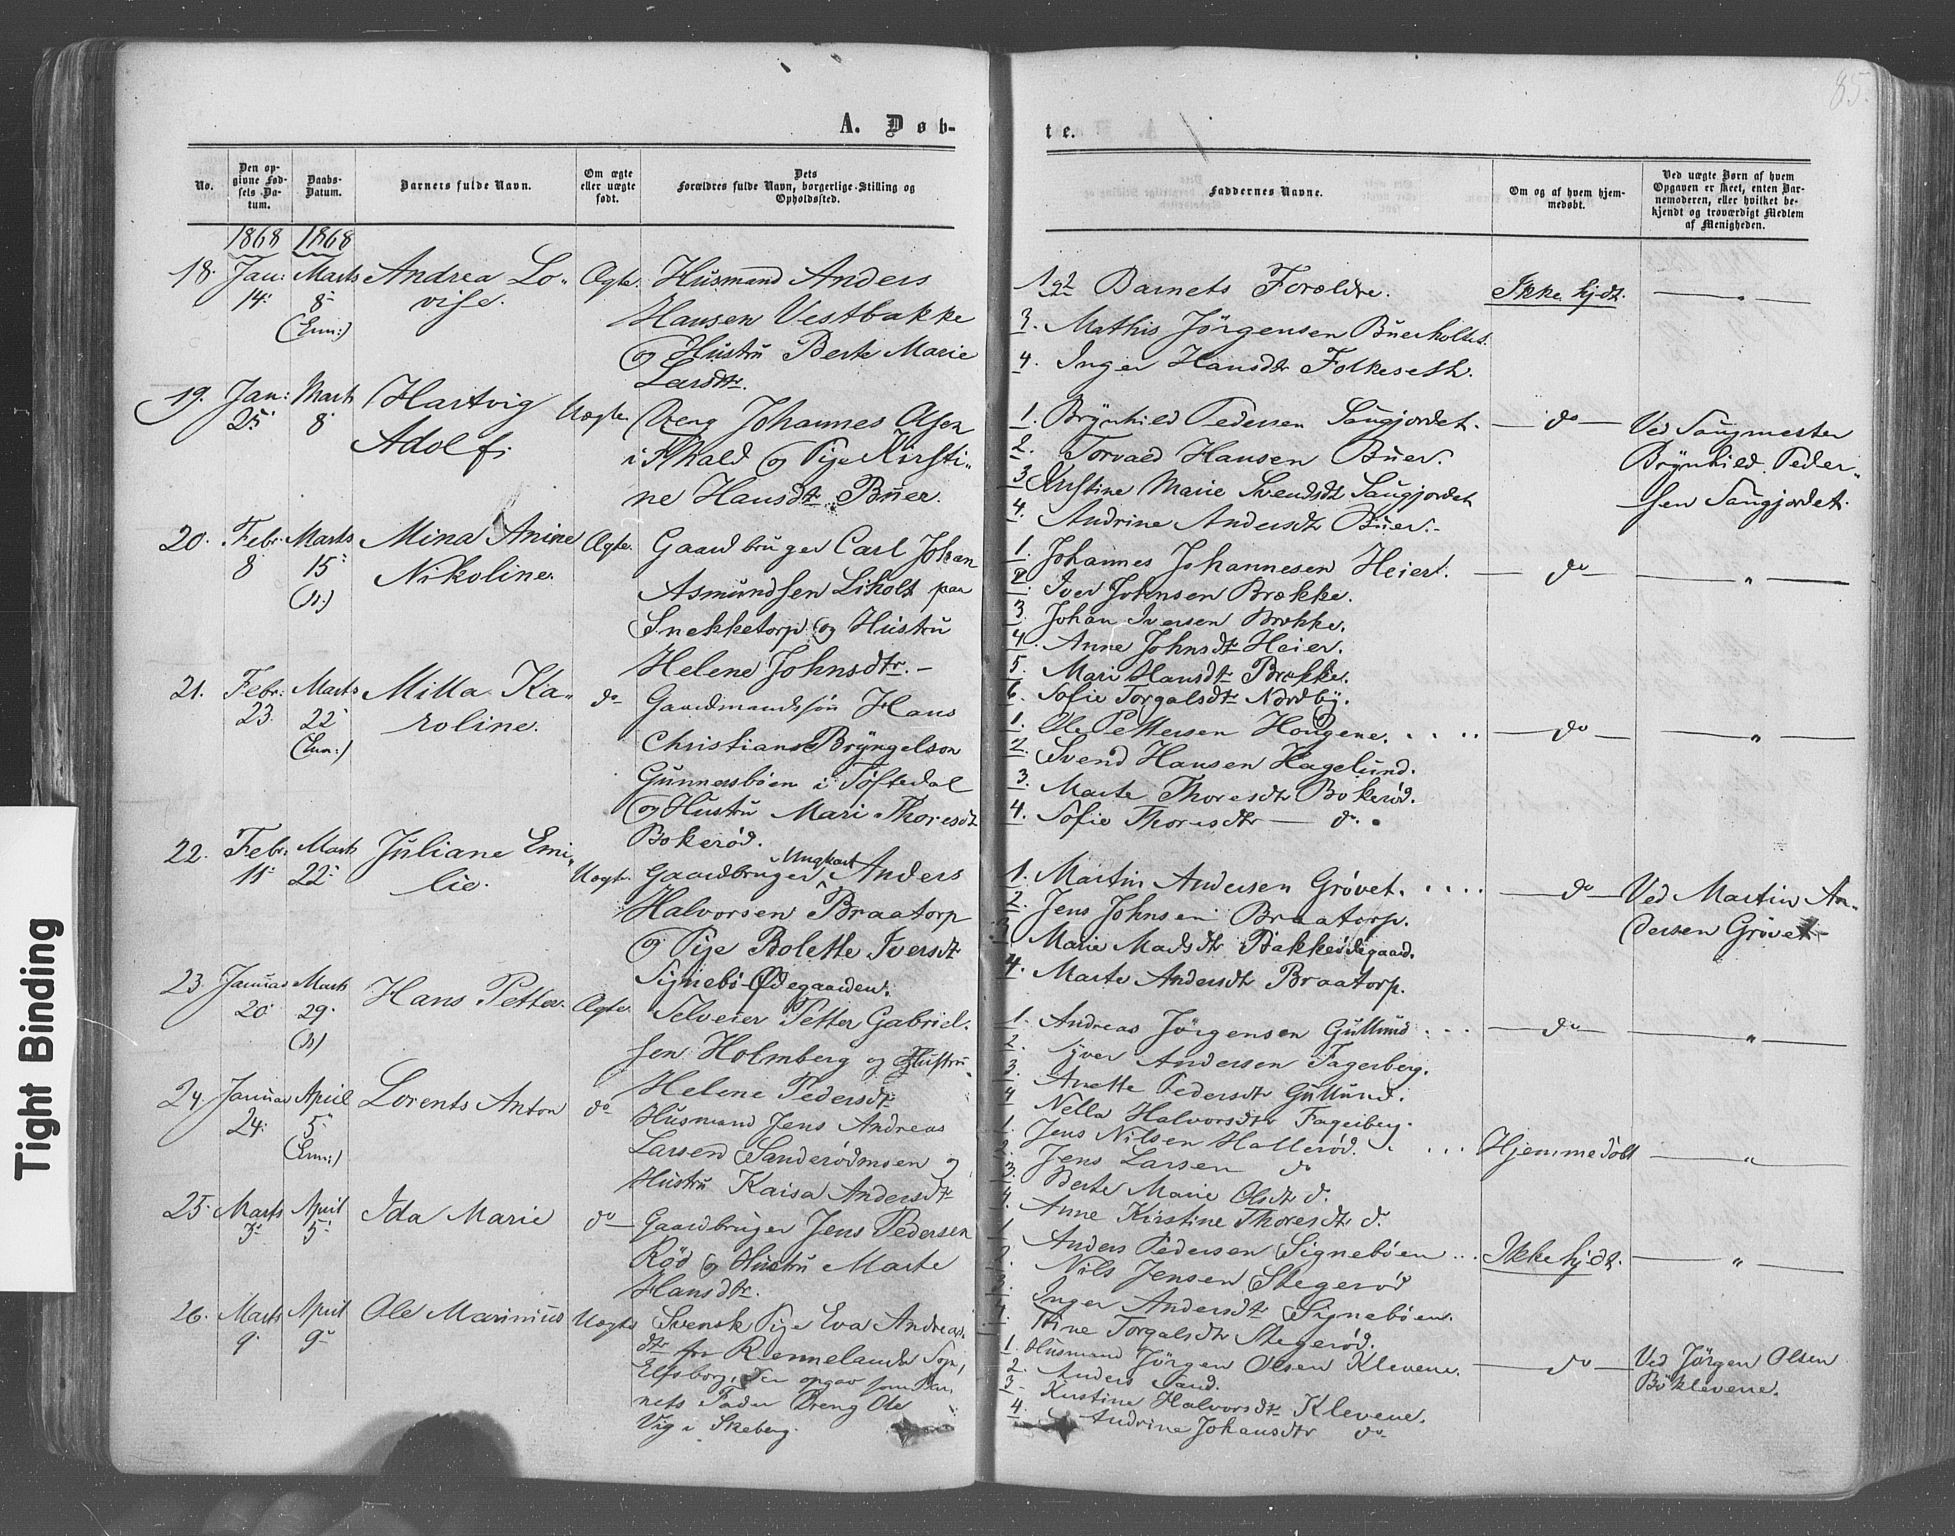 85.
A. Døb-
te.
No.
Den op-
givne Fød-
sels Da-
tum.
Daabs-
Datum.
Barnets fulde Navn.
Om ægte
eller uægte
født.
Dets
Forældres fulde Navn, borgerlige Stilling og
Opholdssted.
Faddernes Navne.
Om og af hvem hjem-
medøbt.
Ved uægte Børn af hvem
Opgaven er skeet, enten Bar-
nemoderen, eller hvilket be-
kjendt og troværdigt Medlem
af Menigheden.
1868 1868
18. Jan: 14. Marts 8 (Enn:)
Andrea Lo-
vise.
Ægte.
Husmand Anders
Hansen Vestbakke
og Hustru Berte Marie
Larsdtr.
1 og 2 Barnets Forældre.
3. Mathis Jörgensen Buerholtet.
4. Inger Hansdtr Folkeseth.
Ikke hjdt.
— " —
19. Jan: 25 Mart 8
Hartvig
Adolf.
Uægte.
Dreng Johannes Olsen
i Fhald og Pige Kirsti-
ne Hansdtr Buer.
1. Brynhild Pedersen Saugjordet.
2. Torvald Hansen Buer.
3. Kirstine Marie Svendsdtr Saugjordet
4. Andrine Andersdtr Buer.
— do —
Ved Saugmester
Brynhild Peder-
sen Saugjordet.
20. Febr. 8 Marts 15
Mina Anine
Nikoline.
Ægte.
Gaardbruger Carl Johan
Asmundsen Liholt paa
Snekketorp og Hustru
Helene Johnsdtr. –
1. Johannes Johannesen Heier.
2. Iver Johnsen Brække.
3. Johan Iversen Brække.
4. Anne Johnsdtr Heier.
5. Mari Hansdtr Brække.
6. Sofie Torgalsdtr Nordby.
— do —
— " —
21. Febr. 23. Marts 22 (Enn:)
Milla Ka-
roline.
do
Gaardmandssön Hans
Christian Bryngelson
Gunnersböen i Töftedal
og Hustru Mari Thoresdt
Bokeröd.
1. Ole Pettersen Hougene.
2. Svend Hansen Hagelund.
3. Marte Thoresdtr Bokeröd.
4. Sofie Thoresdtr — do.
— do —
— " —
22. Febr. 11 Marts 22
Juliane Emi-
lie.
Uægte.
Gaardbruger Ungkarl Anders
Halvorsen Braatorp
og Pige Bolette Iversdtr
Signebö Ödegaarden.
1. Martin Andersen Grövet.
2. Jens Johnsen Braatorp.
3. Marie Madsdtr Bakkeödegaard.
4. Marte Andersdtr Braatorp.
— do —
Ved Martin An-
dersen Grövet
23. Januar 20 Marts 29.
Hans Petter.
Ægte.
Selveier Petter Gabriel-
sen Holmberg og Hustru
Helene Pedersdtr
1. Andreas Jörgensen Gullund
2. Iver Andersen Fagerberg.
3. Anette Pedersdtr Gullund.
4 Nella Halvorsdtr Fagerberg.
— do —
— " —
24. Januar 24. April 5 (Enn:)
Lorents Anton
do
Husmand Jens Andreas
Larsen Sanderödmsen og
Hustru Kaisa Andersdtr
1. Jens Nilsen Halleröd.
2. Jens Larsen do
3. Berte Marie Olsdtr do.
4. Anne Kirstine Thoresdtr do.
Hjemmedöbt
— " —
25. Marts 3 April 5.
Ida Marie
do
Gaardbruger Jens Pedersen
Röd og Hustru Marte
Hansdtr.
1 Anders Pedersen Signeböen
2. Nils Jensen Stegeröd
3. Inger Andersdtr Signeböen.
4. Stine Torgalsdtr Stegeröd.
Ikke hjdt.
— " —
26. Marts 9 April 9
Ole Marinius
Uægte
Svensk Pige Eva Andreas-
dtr fra Rennelanda Sogn,
Elfsborg. Den opgav som Bar-
nets Fader Dreng Ole
Vig i Skeberg.
1. Husmand Jörgen Olsen Klevene.
2. Anders Sand.
3. Kirstine Halvorsdtr Klevene.
4. Andrine Johansdtr do.
— do —
Ved Jörgen Olsen
Böklevene.
Tight Binding